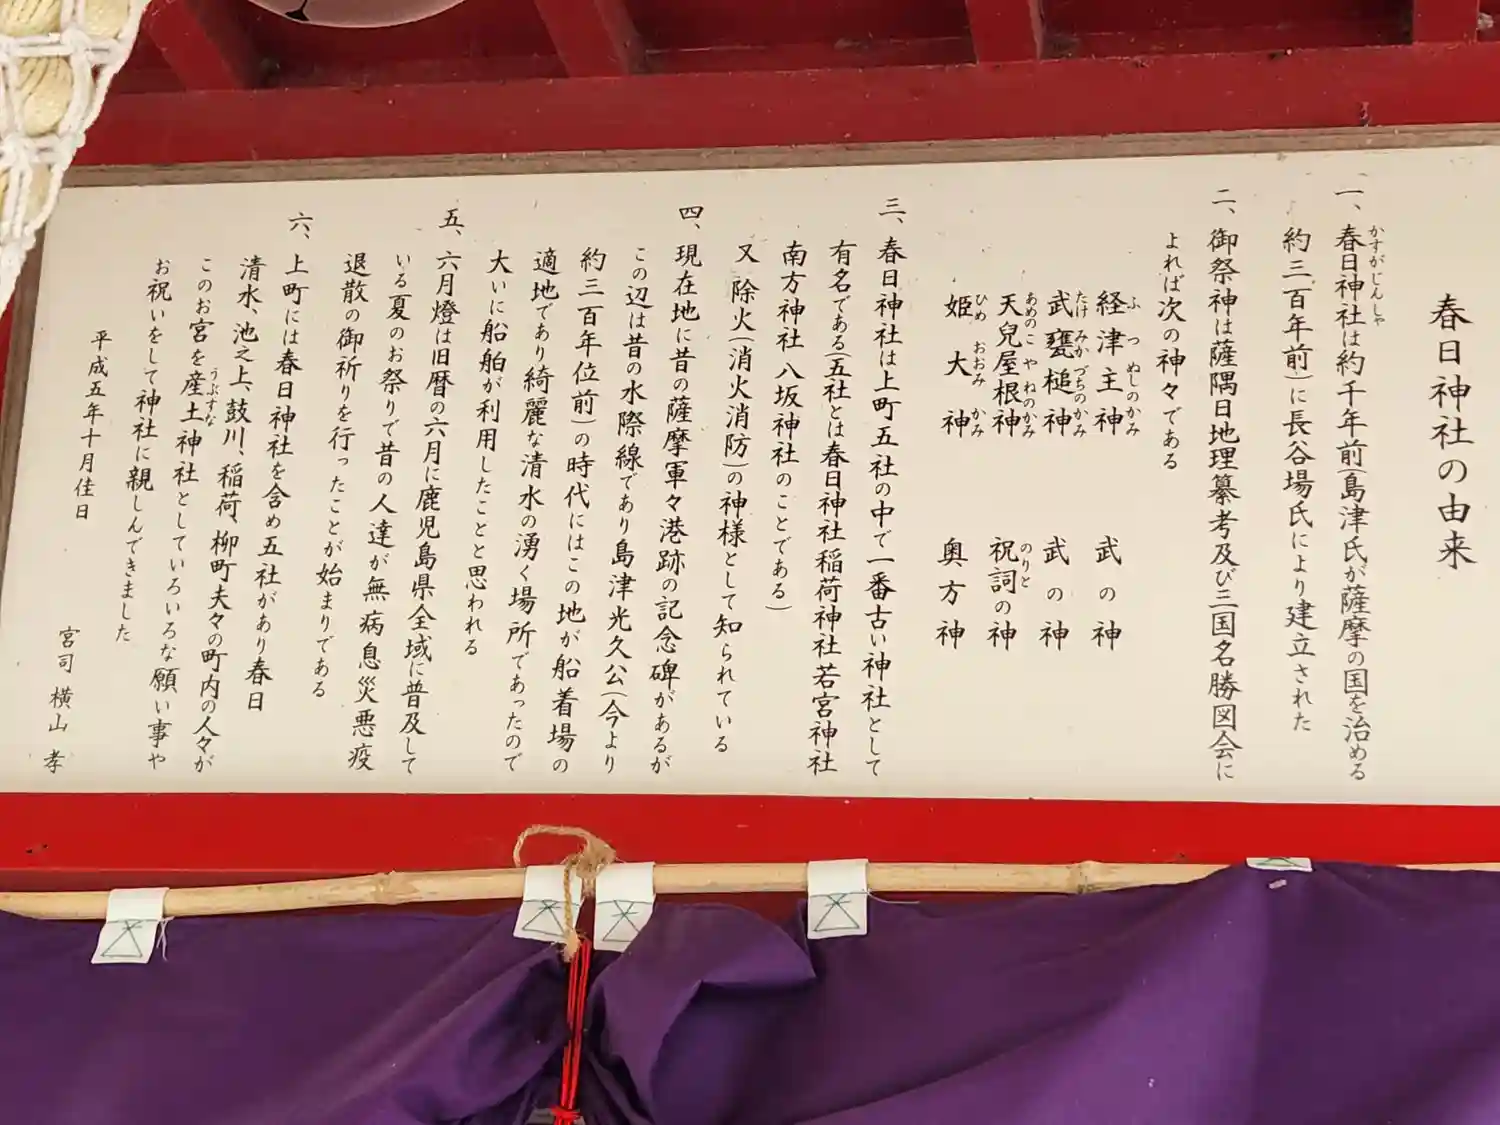 春日神社の由来
一、春日神社は約千年前(島津氏が薩摩の国を治める
かすがじんしゃ
約三百年前)に長谷場氏により建立された
二、御祭神は薩隅日地理纂考及び三国名勝図会に
よれば次の神々である
経津主神 武の神
ふつぬしのかみ
武甕槌神 武の神
たけみかづちのかみ
天兒屋根神 祝詞の神
あめのこやねのかみ のりと
姫大神 奥方神
ひめおおみかみ
三、春日神社は上町五社の中で一番古い神社として
有名である(五社とは春日神社稲荷神社若宮神社
南方神社八坂神社のことである)
又 除火(消火消防)の神様として知られている
四、現在地に昔の薩摩軍々港跡の記念碑があるが
この辺は昔の水際線であり島津光久公(今より
約三百年位前)の時代にはこの地が船着場の
適地であり綺麗な清水の湧く場所であったので
大いに船舶が利用したことと思われる
五、六月燈は旧暦の六月に鹿児島県全域に普及して
いる夏のお祭りで昔の人達が無病息災悪疫
退散の御祈りを行ったことが始まりである
六、上町には春日神社を含め五社があり春日
清水、池之上、鼓川、稲荷、柳町夫々の町内の人々が
このお宮を産土神社としていろいろな願い事や
うぶすな
お祝いをして神社に親しんできました
平成五年十月佳日
宮司 横山 孝